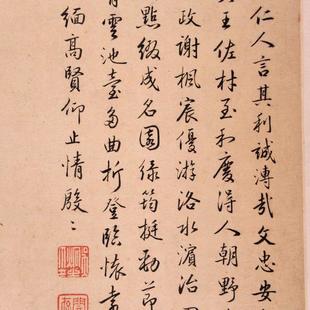 仁人言其利誠溥哉文忠安
王佐村至和慶得人朝野
政謝楓宸優游洛水濱治
點綴成名園綠筠挺勁節
雲池臺多曲折登臨懷
緬高賢仰止情殷〻